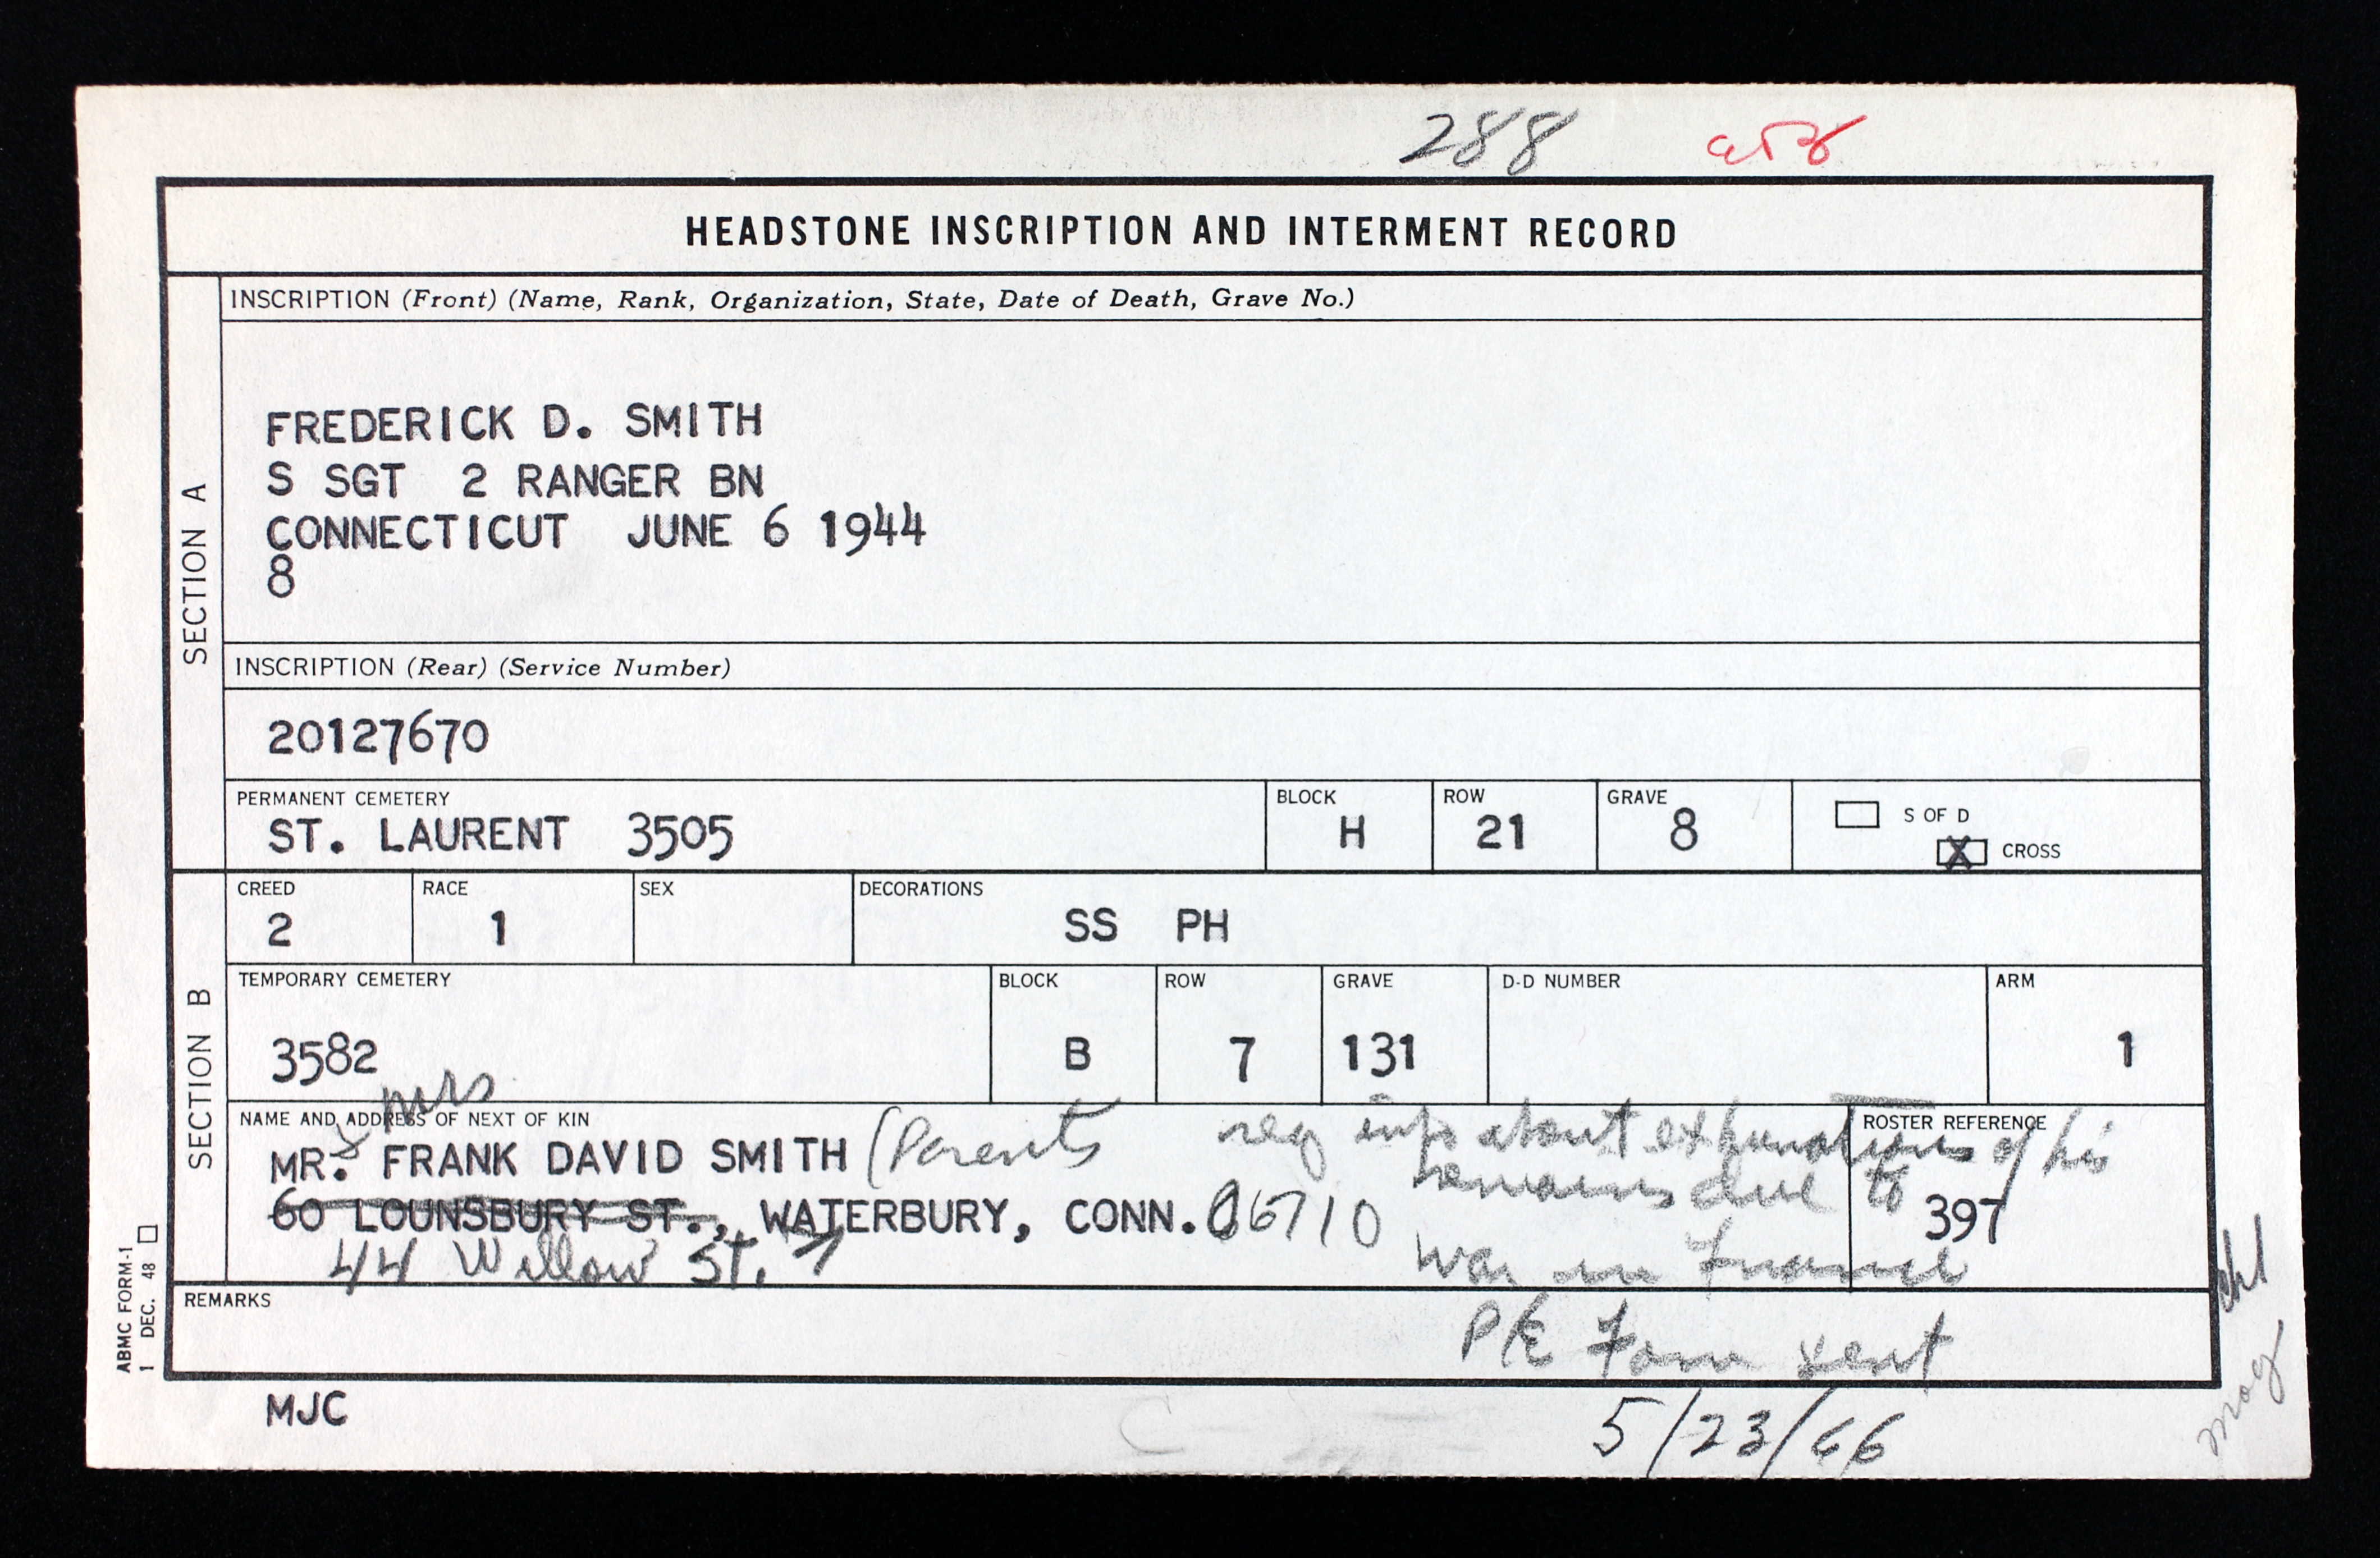 288
HEADSTONE INSCRIPTION AND INTERMENT RECORD
SECTION A
INSCRIPTION (Front) (Name, Rank, Organization, State, Date of Death, Grave No.)
FREDERICK D. SMITH
S SGT 2 RANGER BN
CONNECTICUT JUNE 6 1944
8
INSCRIPTION (Rear) (Service Number)
20127670
PERMANENT CEMETERY BLOCK ROW GRAVE
ST. LAURENT 3505 H 21 8
S OF D
X CROSS
SECTION B
CREED RACE SEX DECORATIONS
2 1 SS PH
TEMPORARY CEMETERY BLOCK ROW GRAVE D-D NUMBER ARM
3582 B 7 131 1
NAME AND ADDRESS OF NEXT OF KIN
ROSTER REFERENCE
& Mrs
MR. FRANK DAVID SMITH (Parents
60 LOUNSBURY ST., WATERBURY, CONN. 06710
44 Willow St.
req info about exhumations of his
remains due to
War in France
397
REMARKS
P/E Form sent
5/23/66
MJC
ABMC FORM-1
1 DEC. 48